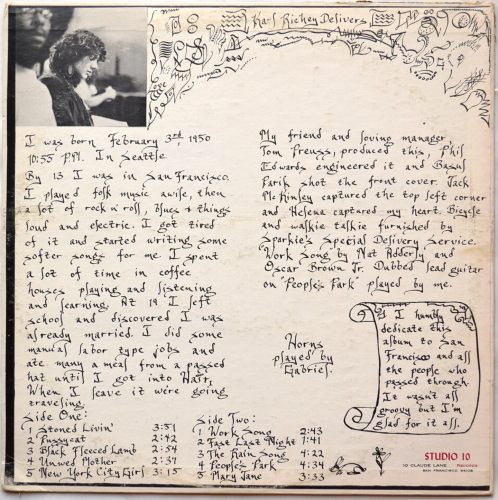 Karl Richey Delivers
I was born February 3rd, 1950
10:55 P.M. In Seattle
By 13 I was in San Francisco.
I played folk music awise, then
a lot of rock n' roll, blues & things
loud and electric. I got tired
of it and started writing some
softer songs for me. I spent
a lot of time in coffee
houses playing and listening
and learning. At 19 I left
school and discovered I was
already married. I did some
manual labor type jobs and
ate many a meal from a passed
hat until I got into Hair.
When I leave it we're going
traveling.
My friend and loving manager,
Tom Preuss, produced this, Phil
Edwards engineered it and Basul
Parik shot the front cover. Jack
McKinley captured the top left corner
and Helena captured my heart. Bicycle
and walkie talkie furnished by
Sparkie's Special Delivery Service.
Work Song by Nat Adderly and
Oscar Brown Jr. Dubbed lead guitar
on "People's Park" played by me.
Horns
played by
Gabriel.
I humbly
dedicate this
album to San
Francisco and all
the people who
passed through.
It wasn't all
groovy but I'm
glad for it all.
Side One:
1 Stoned Livin' 3:51
2 Pussycat 2:42
3 Black Fleeced Lamb 2:54
4 Unwed Mother 2:37
5 New York City Girl 3:15
Side Two:
1 Work Song 2:43
2 Fast Last Night 1:41
3 The Rain Song 4:22
4 People's Park 4:34
5 Mary Jane 3:33
STUDIO 10
10 CLAUDE LANE RECORDS
SAN FRANCISCO 94108